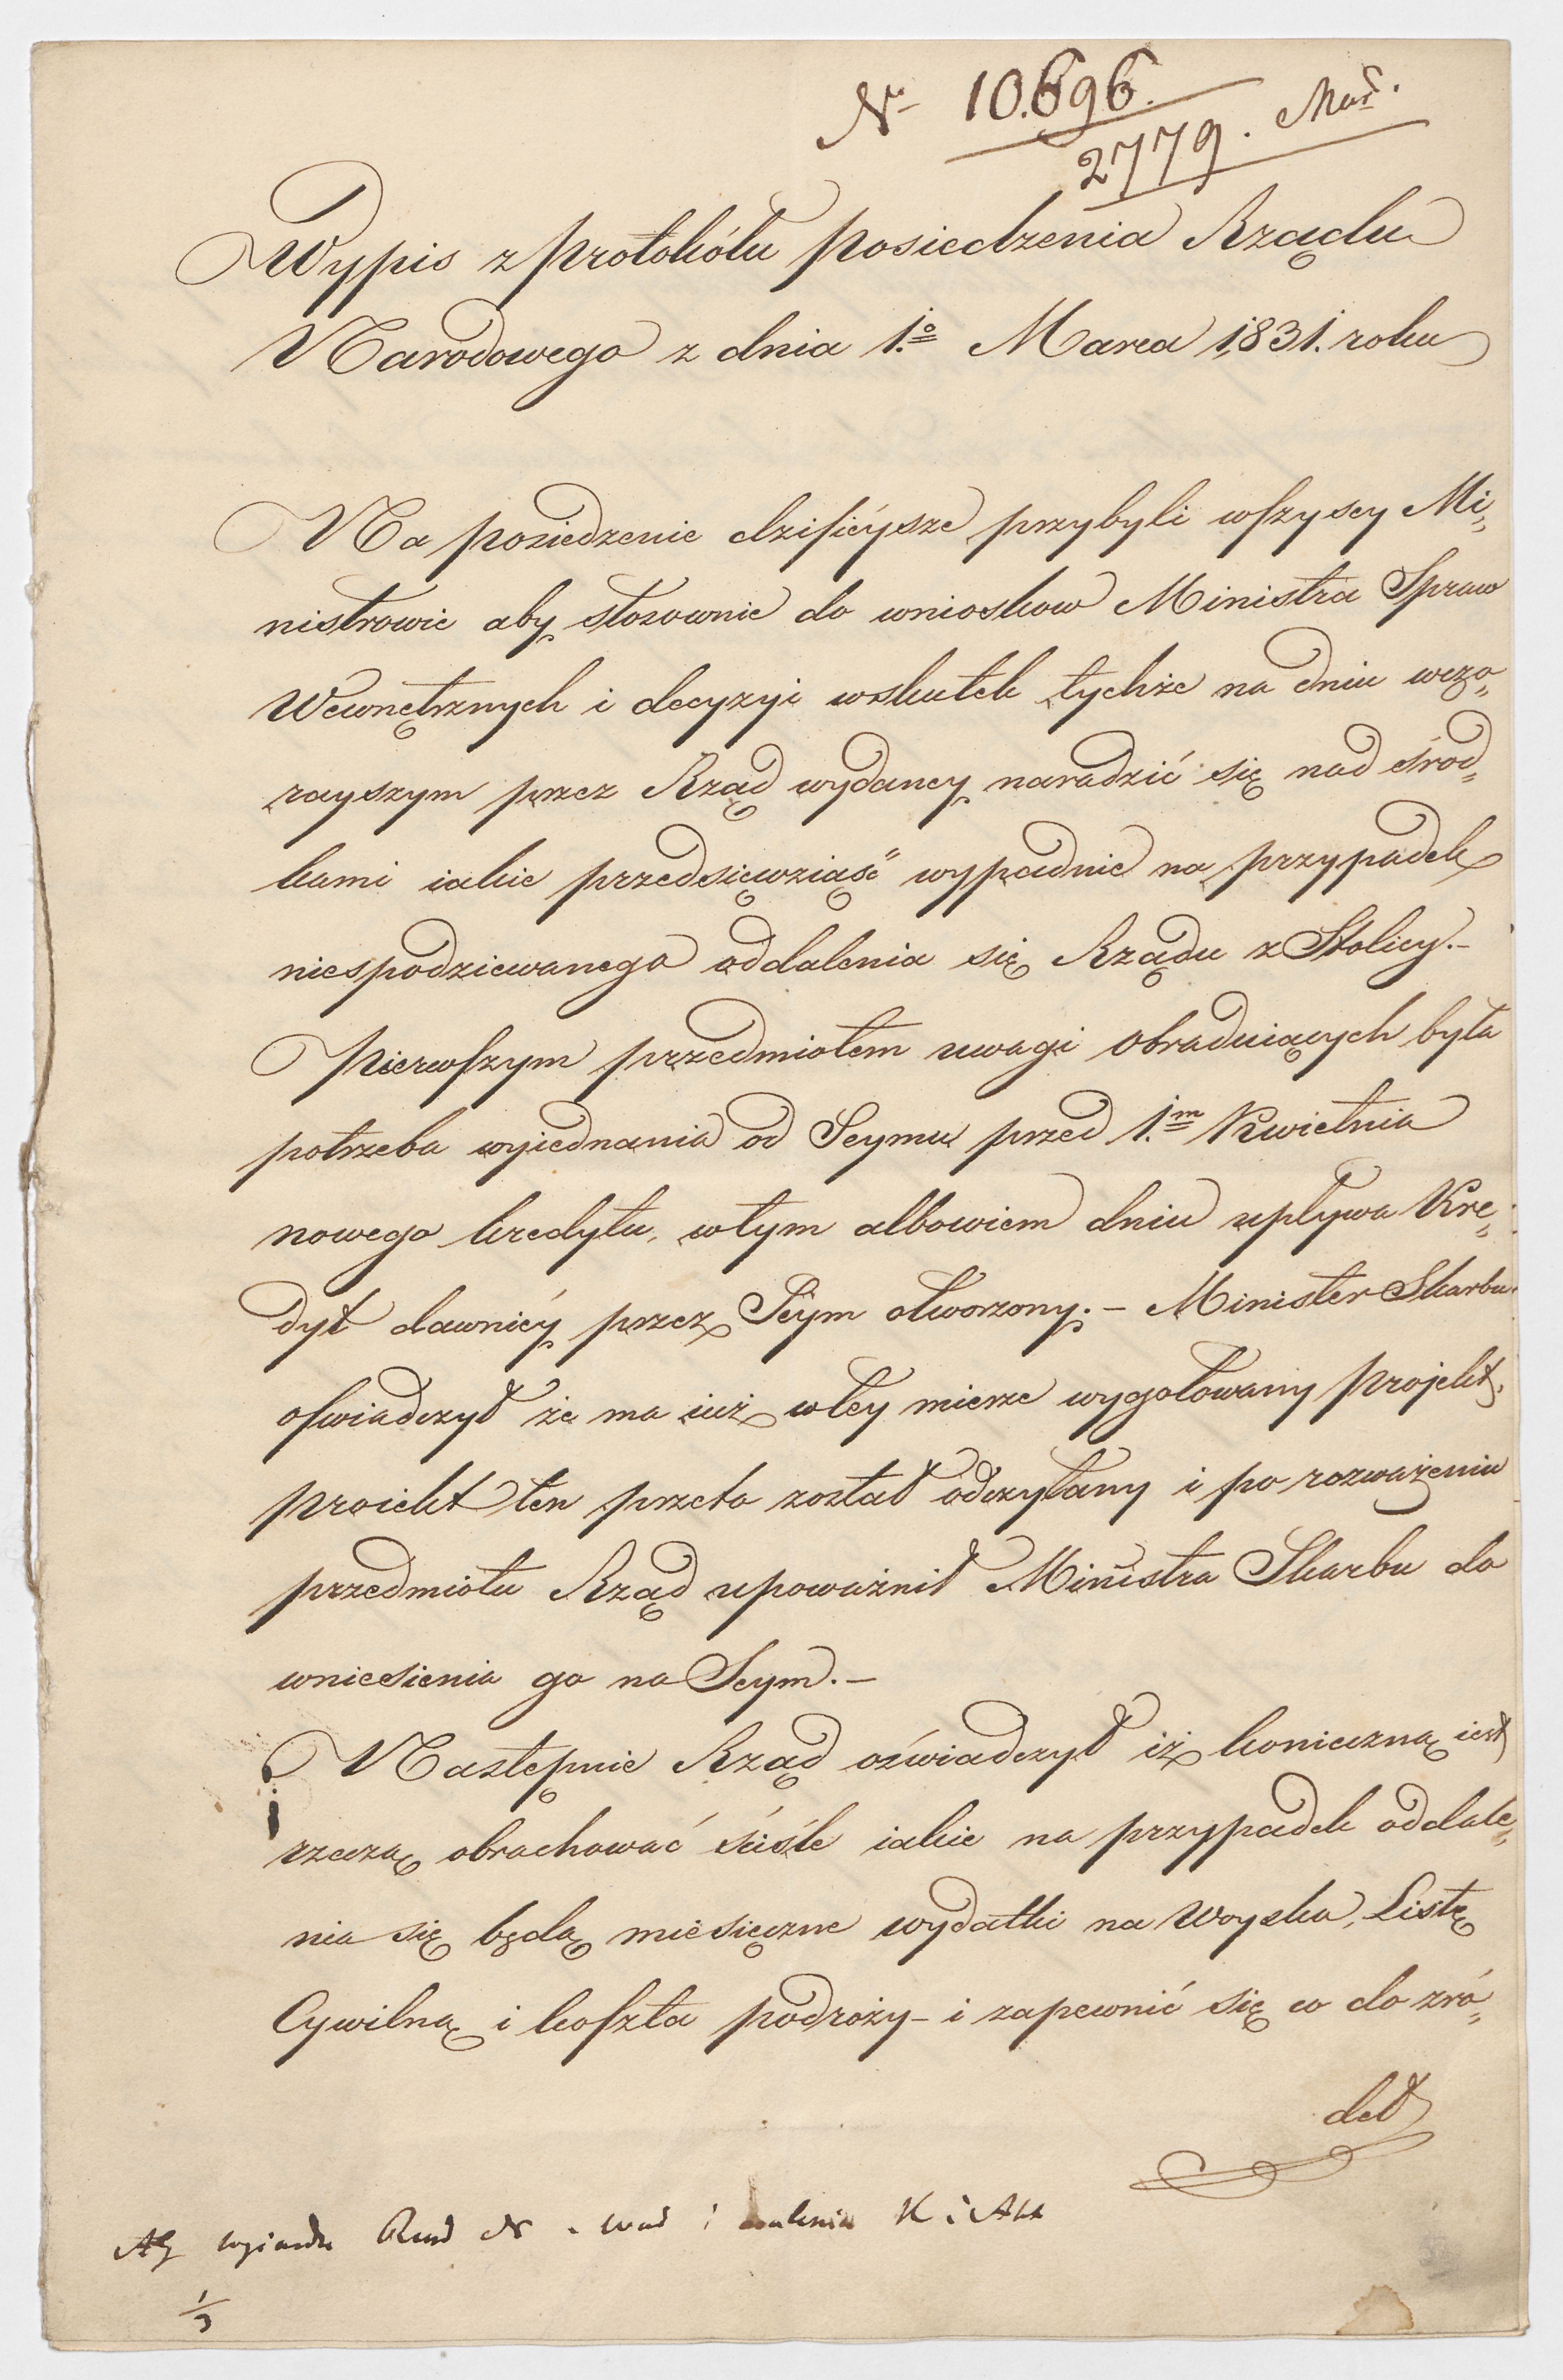 No 10.696.
2779. Mar.
Wypis z protokółu posiedzenia Rządu
Narodowego z dnia 1.o Marca 1831. roku
Na posiedzenie dzisiéysze przybyli wszyscy Mi„
nistrowie aby stosownie do wnioskow Ministra Spraw
Wewnętrznych i decyzyi wskutek tychże na dniu wczo„
rayszym przez Rząd wydaney naradzić się nad środ„
kami iakie przedsięwziąść wypadnie na przypadek
niespodziewanego oddalenia się Rządu z Stolicy.—
Pierwszym przedmiotem uwagi obraduiących była
potrzeba wyjednania od Seymu przed 1.m Kwietnia
nowego kredytu, wtym albowiem dniu upływa Kre„
dyt dawniéy przez Séym otworzony.— Minister Skarbu
oswiadczył że ma iuż wtey mierze wygotowany projekt,
proiekt ten przeto został odczytany i po rozważeniu
przedmiotu Rząd upoważnił Ministra Skarbu do
wniesienia go na Seym.—
Następnie Rząd oświadczył iż konieczną iest
rzeczą obrachować ściśle iakie na przypadek oddale„
nia się będą miesięczne wydatki na Woyska, Listę
Cywilną i koszta podroży— i zapewnić się co do zró„
deł